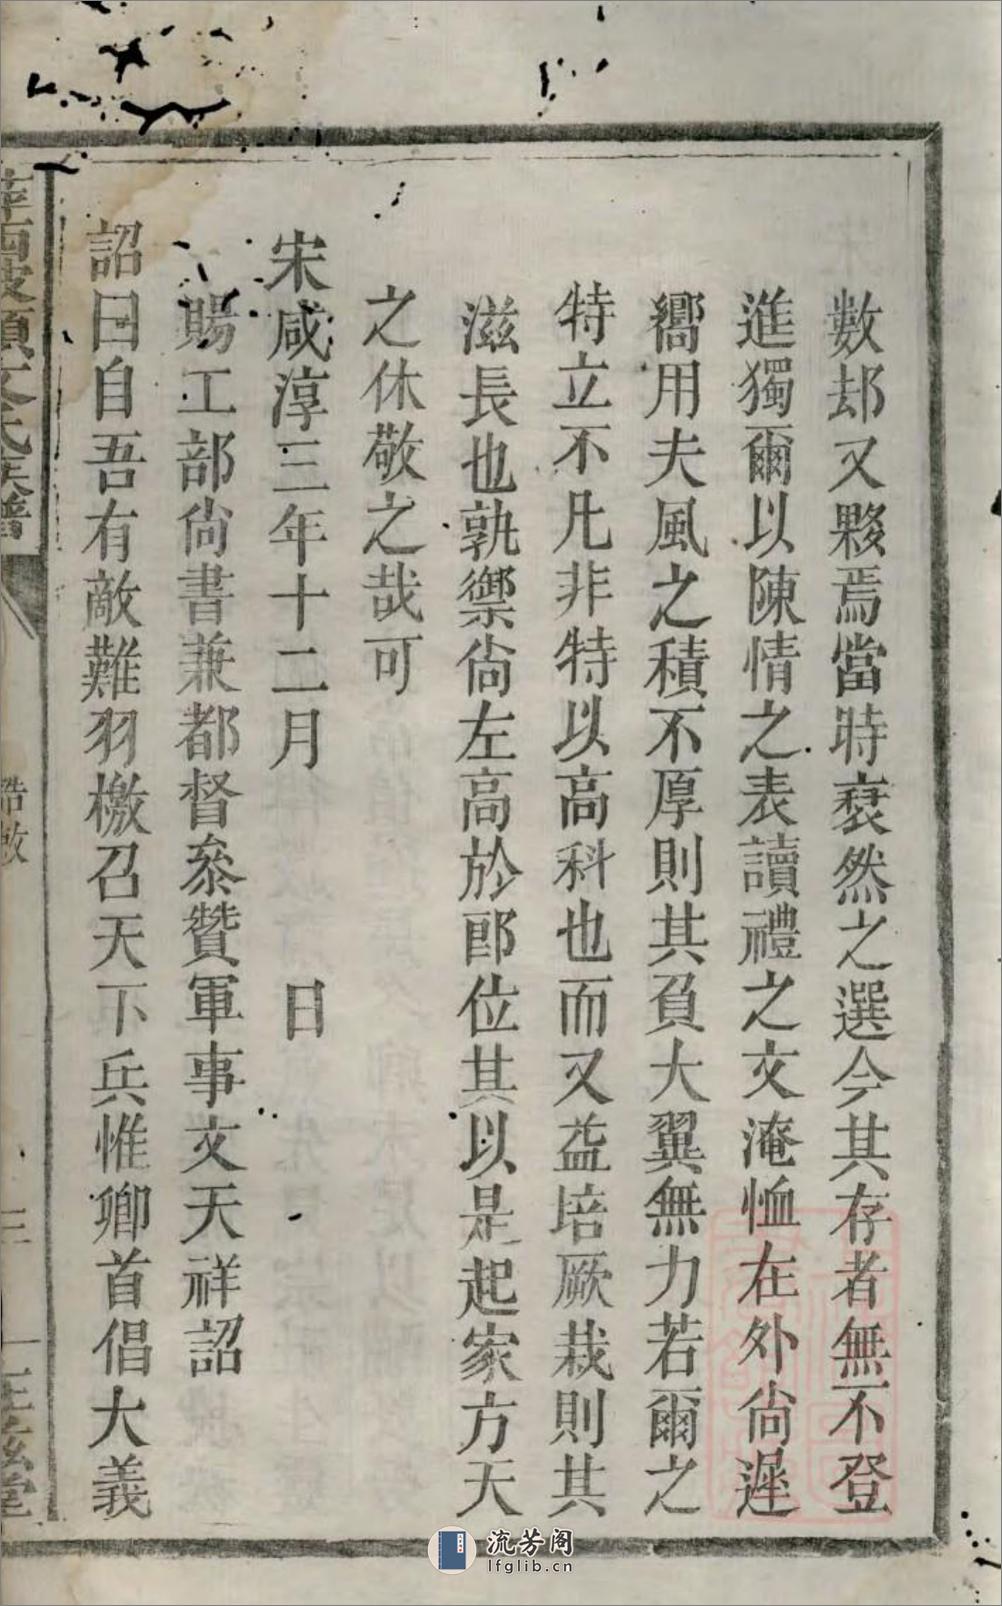 數却又夥焉當時裒然之選今其存者無不登
進獨爾以陳情之表讀禮之文淹恤在外尙遲
嚮用夫風之積不厚則其負大翼無力若爾之
特立不凡非特以高科也而又益培厥栽則其
滋長也孰禦尙左高於郎位其以是起家方天
之休敬之哉可
宋咸淳三年十二月　日
賜工部尙書兼都督叅贊軍事文天祥詔
詔曰自吾有敵難羽檄召天下兵惟卿首倡大義
文氏族譜
誥敕
三
流芳阁
lfglib.cn